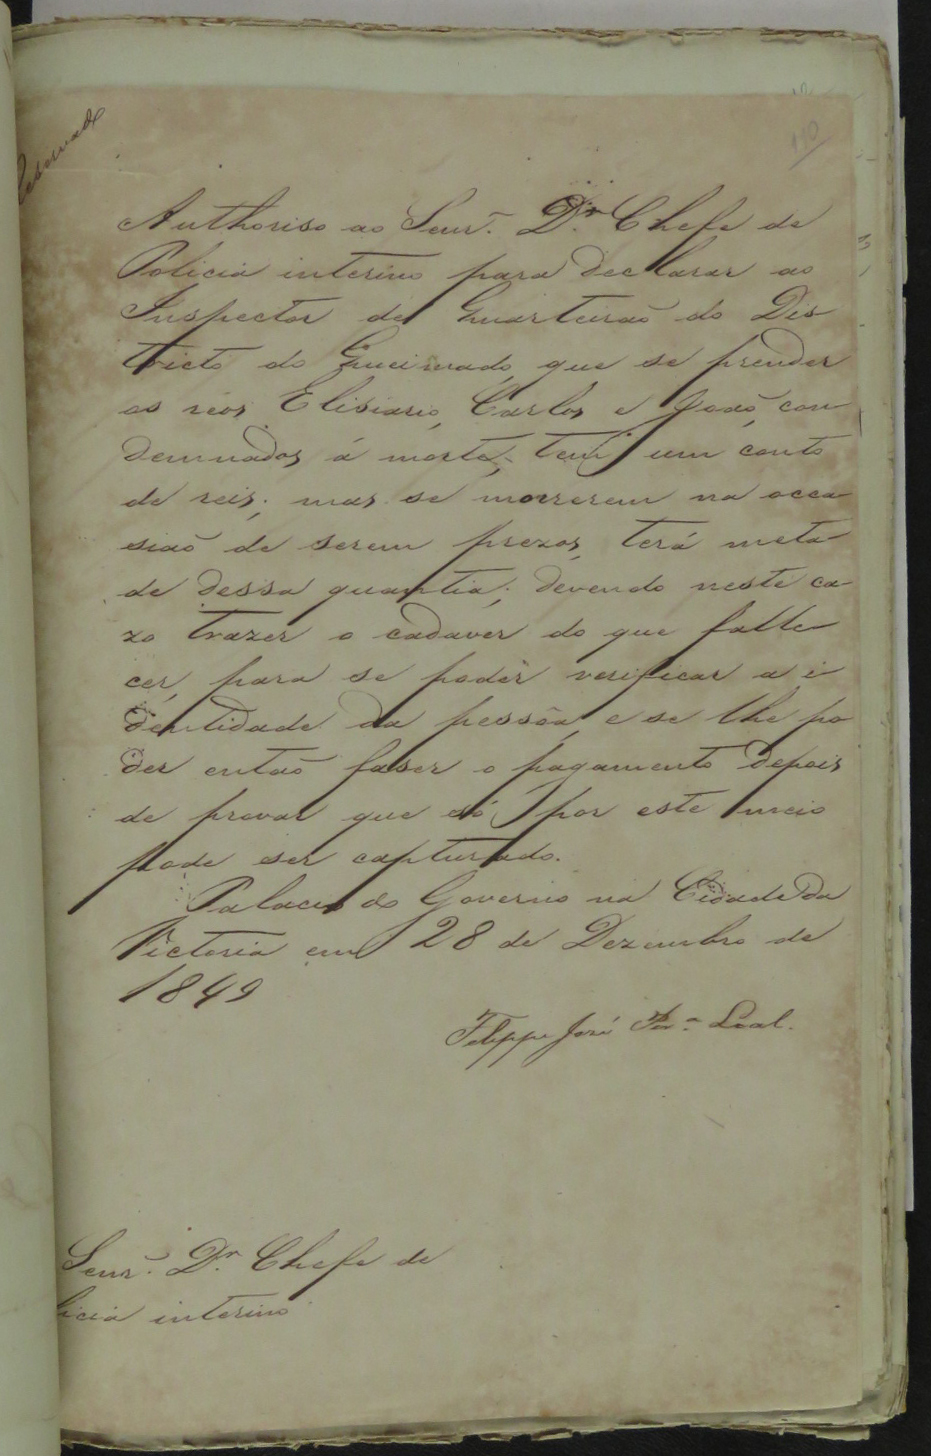 Reservado
110
Authoriso ao Senr. Dr. Chefe de
Policia interino para declarar ao
Inspector de Quarteirão do Dis
tricto do Queimado, que se prender
os réos, Elisiario, Carlos e João, con
demnados á morte, tem um conto
de reis; mas se morrerem na occa
sião de serem prezos, terá meta
de dessa quantia; devendo neste ca
zo trazer o cadaver do que falle
cer, para se podér verificar a i
dentidade da pessôa, e se lhe po
der então faser o pagamento depois
de provar que só por este meio
pode ser capturado.
Palacio do Governo na Cidade da
Victoria em 28 de Dezembro de
1849
Felippe José Pera. Leal.
Senr. Dr. Chefe de
licia interino